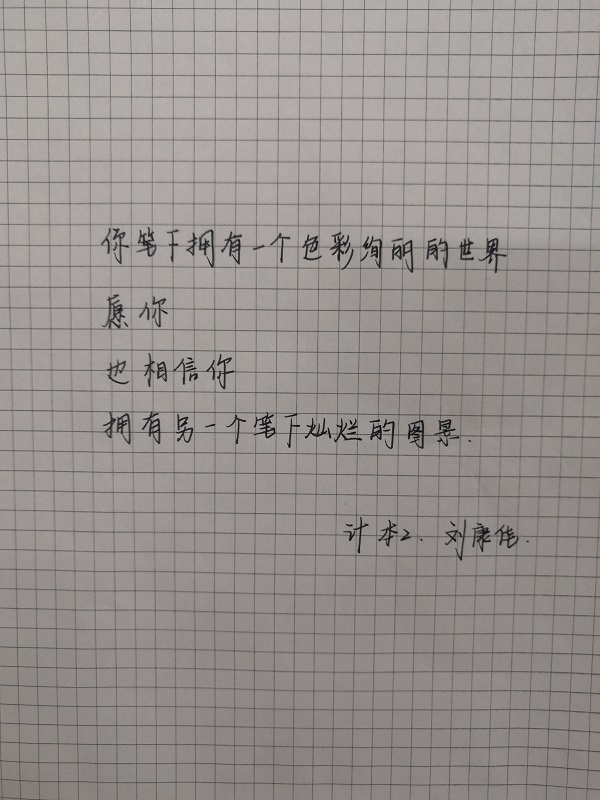 你笔下拥有一个色彩绚丽的世界
愿你
也相信你
拥有另一个笔下灿烂的图景.
计本2. 刘康佳.